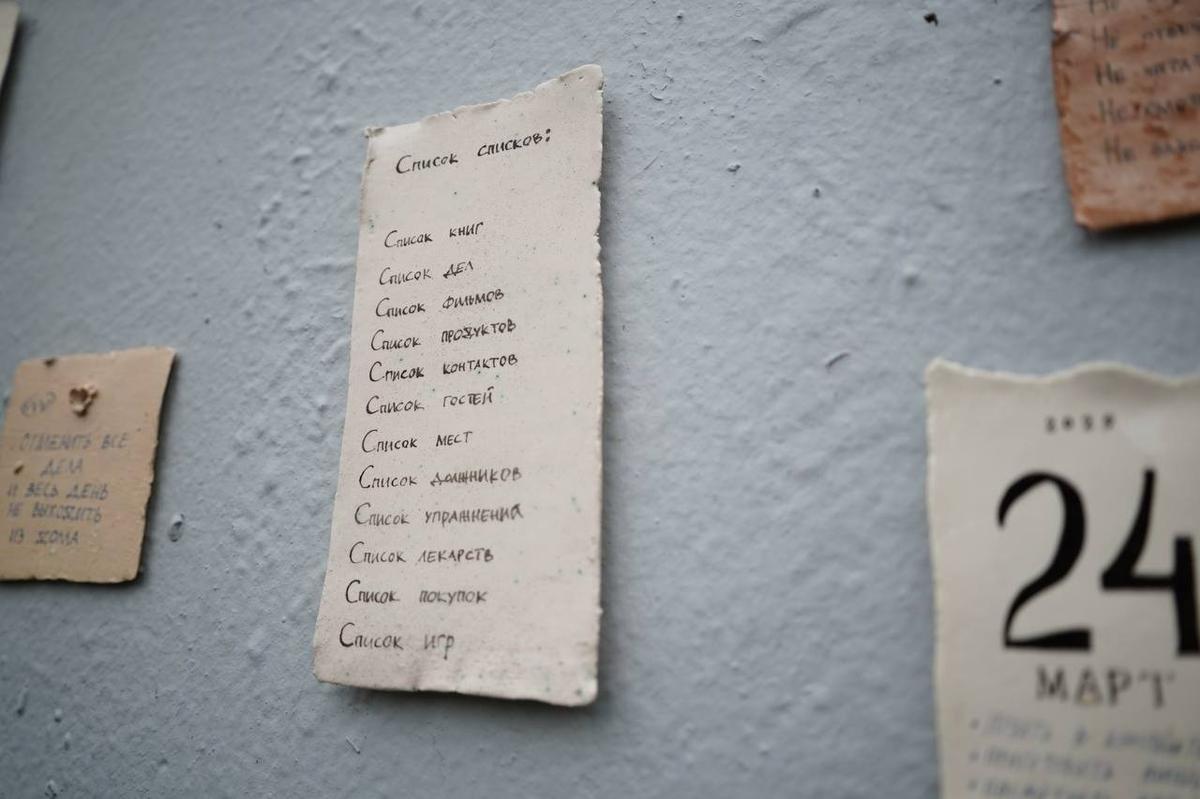 Список списков:
Список книг
Список дел
Список фильмов
Список продуктов
Список контактов
Список гостей
Список мест
Список должников
Список упражнений
Список лекарств
Список покупок
Список игр
Отменить все
дела
и весь день
не выходить
из дома
Не
Не
Не
24
МАРТ